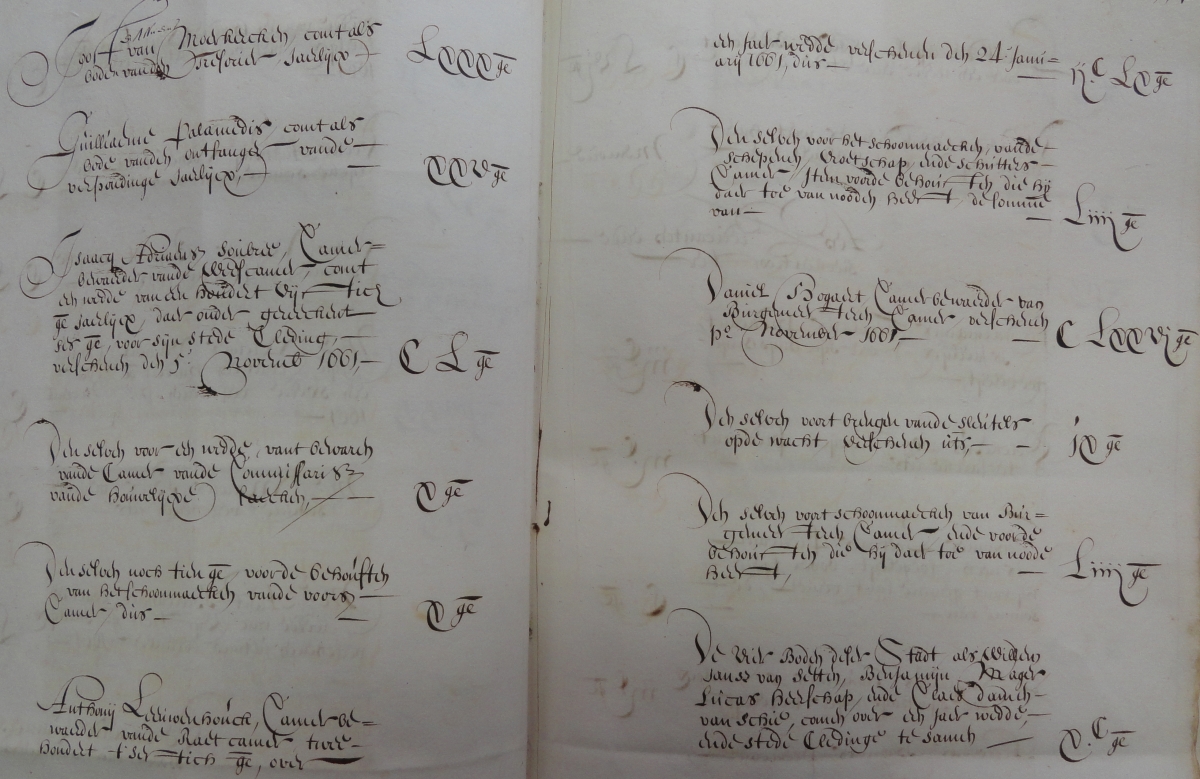 Joost van Moerkercken, comt als
bode vanden Tresorier Jaerlijcx — LXXX gl
Guilliaeme Palamedis, comt als
bode vanden ontfanger vande
verpondinge Jaerlijcx, — XXV gl
Isaacq Adriaens Camer=
bewaerder vande Weescamer comt
een wedde van een hondert vijftich
gl Jaerlijcx, daer onder gereeckent
ses gl, voor sijn stede Cleding,
verschenen den 5 Novemb 1661, — C L gl
Den selven voor een wedde, vant bewaren
vande Camer vande Commissaris
vande houwelijcxe saecken, — X gl
Den selven noch tien gl, voor de behouften
van het schoonmaecken vande voors
Camer, dus — X gl
Anthonij Leeuwenhouck, Camerbe=
waerder vande Raetcamer twee
hondert tsestich gl, over
een Jaer wedde verschenen den 24 Janu=
arij 1661, dus — ij C LX gl
Den selven voor het schoonmaecken, vande
schepenen, Vroetschap, ende schutters
Camer, Item voorde behouften die hij
daer toe van nooden heeft, de somme
van — Liiij gl
Daniel Bogaert, Camerbewaerder van
Burgemeesteren Camer verschenen
po November 1661, — C LXXVj gl
Den selven voort brengen vande sleutels
opde wacht verschenen uts, — jX gl
Den selven voort schoonmaecken van Bur=
gemeesteren Camer ende voorde
behouften die hij daer toe van noode
heeft, — Liiij gl
De Vier Boden deser Stadt als Willem
Jansz van Setten, Benjamijn Mager
Lucas Heerschap, ende Claes Damen
van Schie, comen over een Jaer wedde,
ende stede Cledinge te samen — V C gl